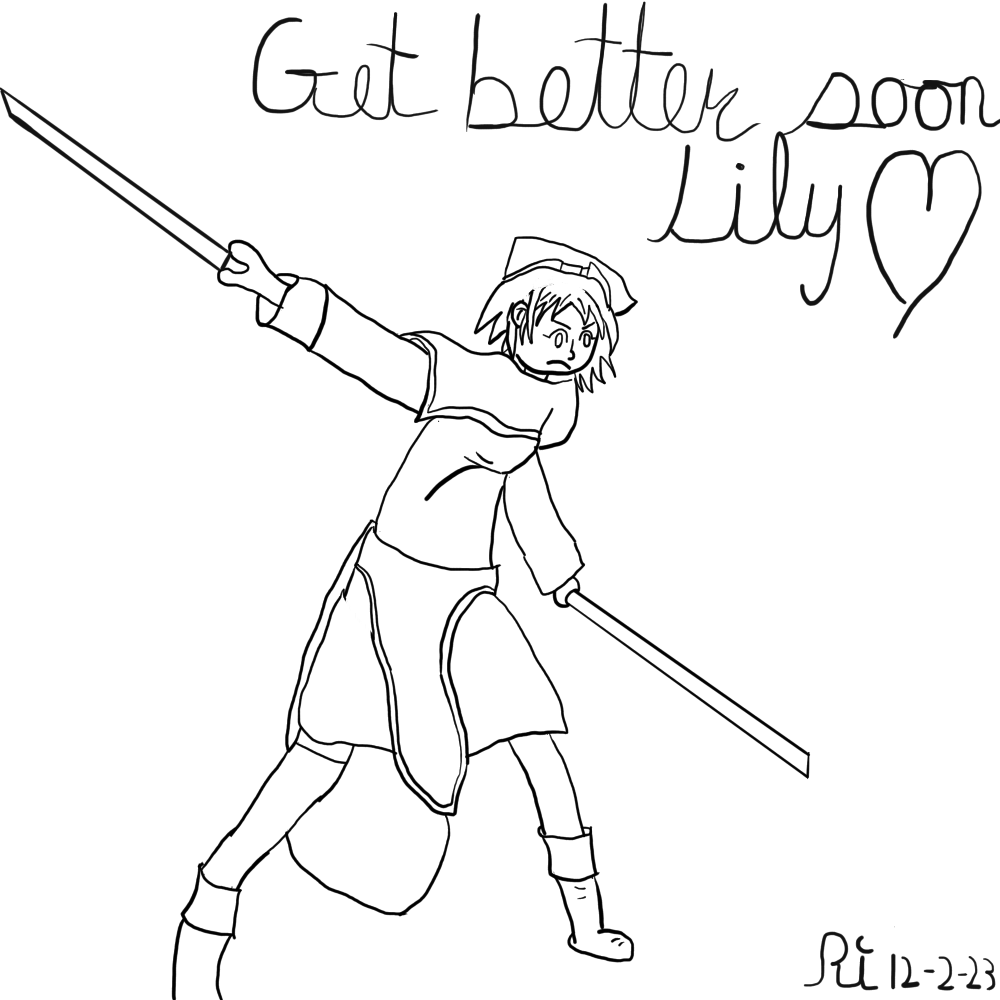 Get better soon
Lily
Rii 12-2-23